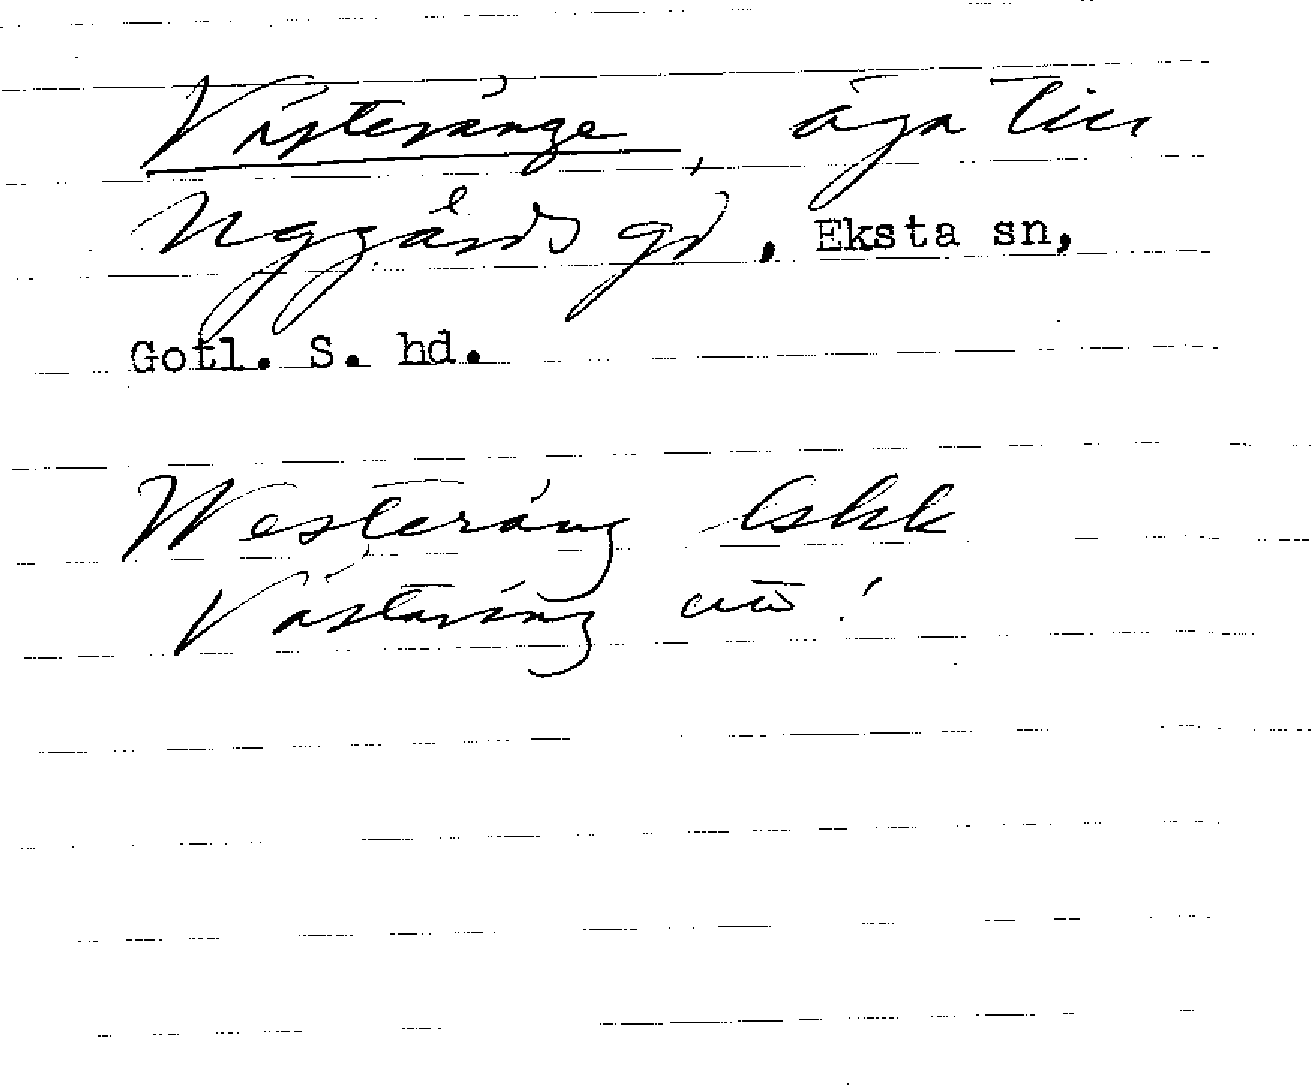 Västeränge, äga till
Nygårds gd, Eksta sn,
Gotl. S. hd.
Westeräng lskk
Västeräng utt!